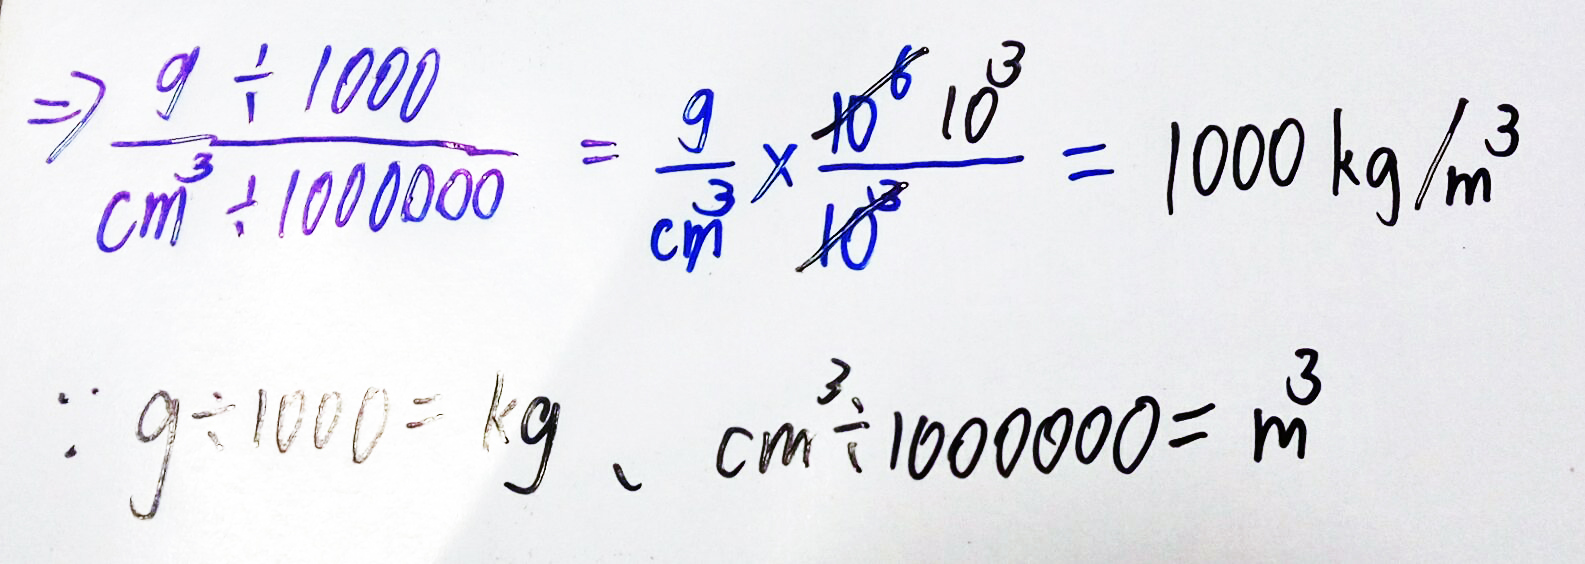 ⇒ g ÷ 1000 / cm³ ÷ 1000000 = g / cm³ × 10⁶ 10³ / 10³ = 1000 kg/m³
∵ g ÷ 1000 = kg 、 cm³ ÷ 1000000 = m³